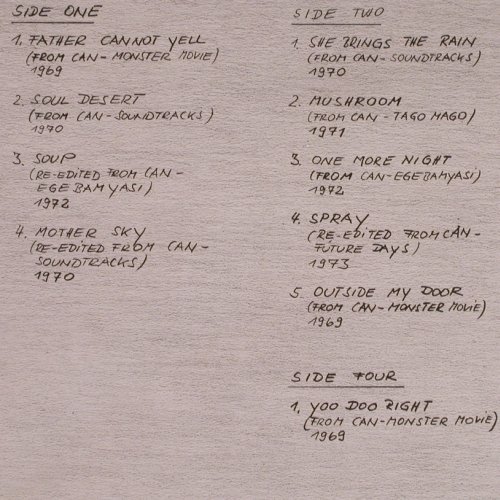 SIDE ONE
1. FATHER CANNOT YELL
(FROM CAN - MONSTER MOVIE)
1969
2. SOUL DESERT
(FROM CAN - SOUNDTRACKS)
1970
3. SOUP
(RE-EDITED FROM CAN -
EGE BAMYASI)
1972
4. MOTHER SKY
(RE-EDITED FROM CAN -
SOUNDTRACKS)
1970
SIDE TWO
1. SHE BRINGS THE RAIN
(FROM CAN - SOUNDTRACKS)
1970
2. MUSHROOM
(FROM CAN - TAGO MAGO)
1971
3. ONE MORE NIGHT
(FROM CAN - EGE BAMYASI)
1972
4. SPRAY
(RE-EDITED FROM CAN -
FUTURE DAYS)
1973
5. OUTSIDE MY DOOR
(FROM CAN - MONSTER MOVIE)
1969
SIDE FOUR
1. YOO DOO RIGHT
(FROM CAN - MONSTER MOVIE)
1969